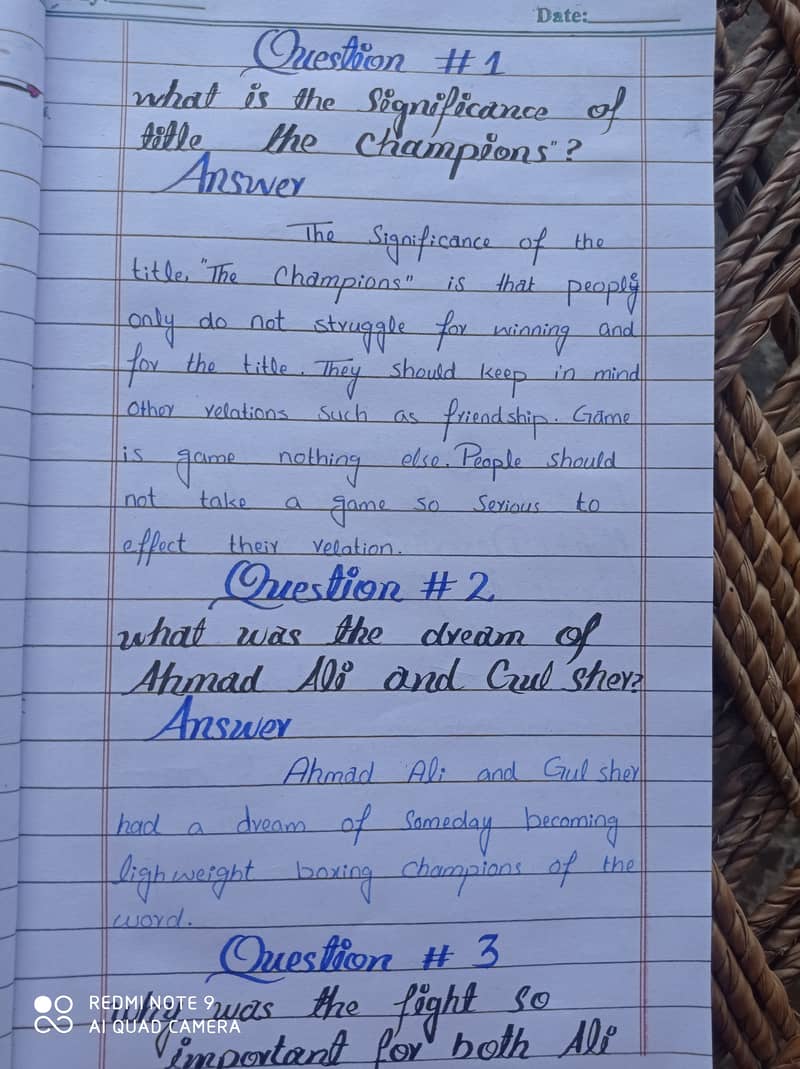 Date:
Question # 1
what is the Significance of
title the Champions"?
Answer
The Significance of the
title, "The Champions" is that people
only do not struggle for winning and
for the title. They should keep in mind
other relations such as friendship. Game
is game nothing else. People should
not take a game so serious to
effect their relation.
Question # 2.
what was the dream of
Ahmad Ali and Gul sher?
Answer
Ahmad Ali and Gul sher
had a dream of someday becoming
lighweight boxing champions of the
word.
Question # 3
why was the fight so
important for both Ali
REDMI NOTE 9
AI QUAD CAMERA